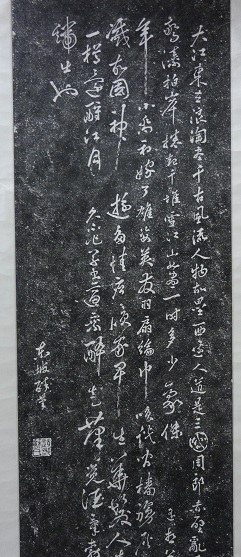 大江東去浪淘盡千古風流人物故壘西邊人道是三國周郎赤壁亂
濤拍岸捲起千堆雪江山如畫一時多少豪傑
年小喬初嫁了雄姿英發羽扇綸巾談檣櫓灰
滅故國神遊多情應笑我早生華髮人生
一樽還酹江月 久不作草書適乘醉走筆覺酒氣勃
端出也
東坡醉筆